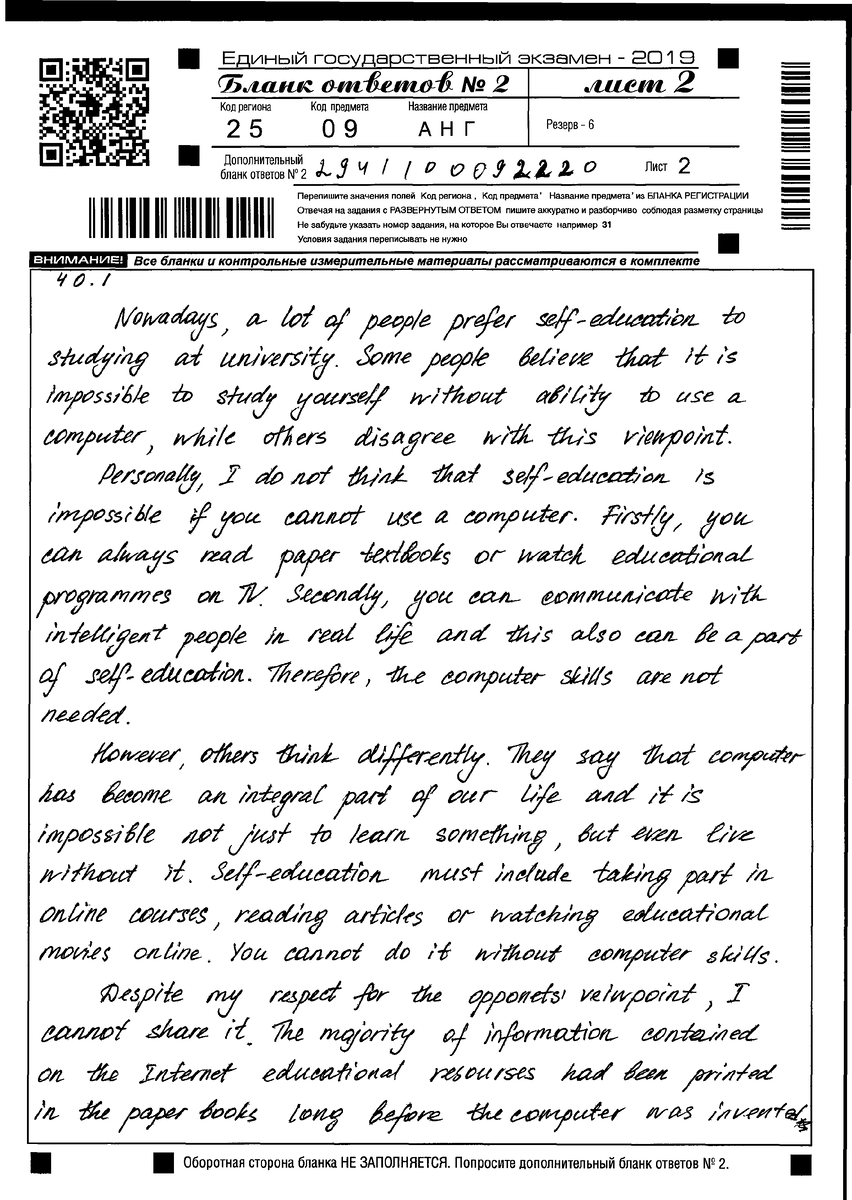 Единый государственный экзамен - 2019
Бланк ответов № 2 лист 2
Код региона Код предмета Название предмета
25 09 АНГ Резерв - 6
Дополнительный
бланк ответов № 2 2941100092220 Лист 2
Перепишите значения полей Код региона , Код предмета' Название предмета' из БЛАНКА РЕГИСТРАЦИИ
Отвечая на задания с РАЗВЕРНУТЫМ ОТВЕТОМ пишите аккуратно и разборчиво соблюдая разметку страницы
Не забудьте указать номер задания, на которое Вы отвечаете например 31
Условия задания переписывать не нужно
ВНИМАНИЕ! Все бланки и контрольные измерительные материалы рассматриваются в комплекте
40.1
Nowadays, a lot of people prefer self-education to
studying at university. Some people believe that it is
impossible to study yourself without ability to use a
computer, while others disagree with this viewpoint.
Personally, I do not think that self-education is
impossible if you cannot use a computer. Firstly, you
can always read paper textbooks or watch educational
programmes on TV. Secondly, you can communicate with
intelligent people in real life and this also can be a part
of self-education. Therefore, the computer skills are not
needed.
However, others think differently. They say that computer
has become an integral part of our life and it is
impossible not just to learn something, but even live
without it. Self-education must include taking part in
online courses, reading articles or watching educational
movies online. You cannot do it without computer skills.
Despite my respect for the opponets' veiwpoint, I
cannot share it. The majority of information contained
on the Internet educational resourses had been printed
in the paper books long before the computer was invented
Оборотная сторона бланка НЕ ЗАПОЛНЯЕТСЯ. Попросите дополнительный бланк ответов № 2.